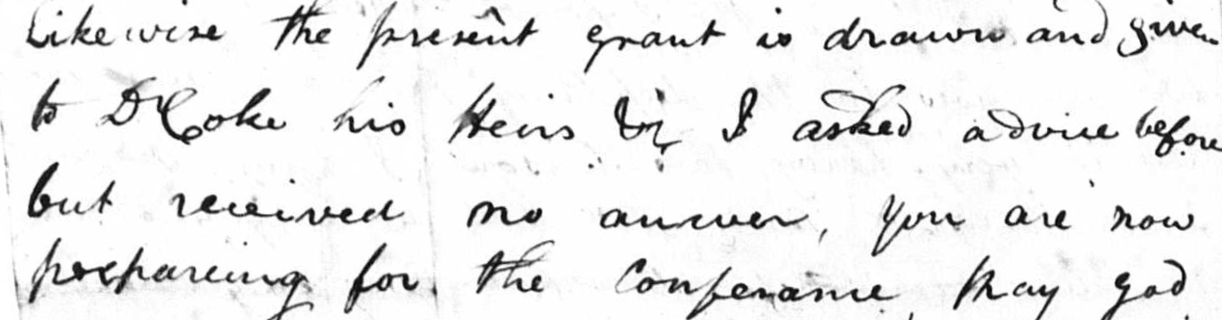 Likewise the present grant is drawn and given
to Dr Coke his Heirs &c I asked advice before
but received no answer, you are now
prepareing for the Conferance, may god